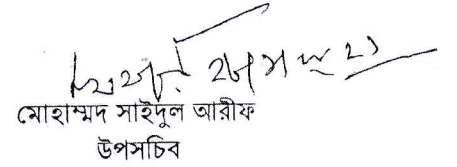 মোহাম্মদ সাইদুল আরীফ
উপসচিব